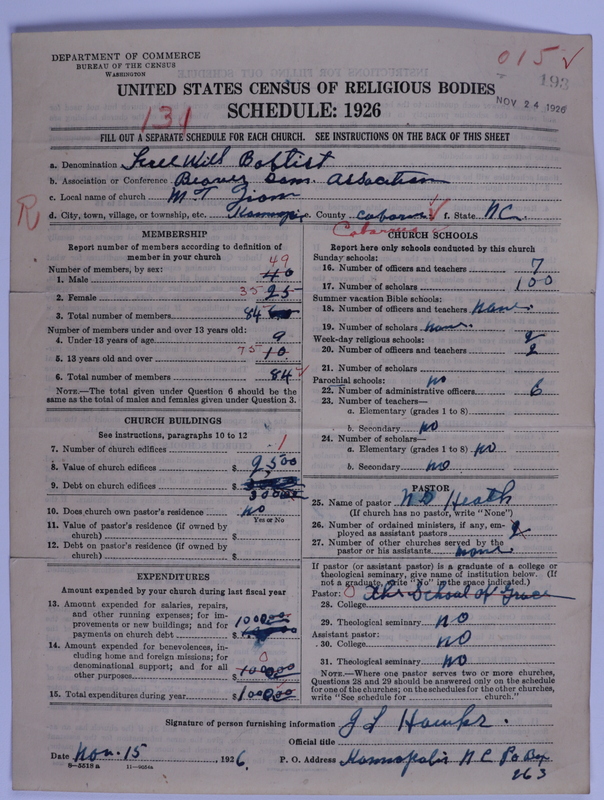 DEPARTMENT OF COMMERCE
BUREAU OF THE CENSUS
WASHINGTON
015 ✓
193
NOV 24 1926
UNITED STATES CENSUS OF RELIGIOUS BODIES
SCHEDULE: 1926
131
FILL OUT A SEPARATE SCHEDULE FOR EACH CHURCH. SEE INSTRUCTIONS ON THE BACK OF THIS SHEET
a. Denomination Free Will Baptist
b. Association or Conference Beaver Dam Association
c. Local name of church MT Zion
R
d. City, town, village, or township, etc. Kannapolis e. County Cabarrus f. State NC
Cabarrus
MEMBERSHIP
Report number of members according to definition of
member in your church
Number of members, by sex: 49
1. Male 40
2. Female 35 25
3. Total number of members 84
Number of members under and over 13 years old:
4. Under 13 years of age 9
5. 13 years old and over 75 10
6. Total number of members 84 ✓
NOTE.—The total given under Question 6 should be
same as the total of males and females given under Question 3.
CHURCH BUILDINGS
See instructions, paragraphs 10 to 12
7. Number of church edifices 1
8. Value of church edifices $ 9500
9. Debt on church edifices $
10. Does church own pastor's residence no
Yes or No
11. Value of pastor's residence (if owned by
church) $
12. Debt on pastor's residence (if owned by
church) $
EXPENDITURES
Amount expended by your church during last fiscal year
13. Amount expended for salaries, repairs,
and other running expenses; for im-
provements or new buildings; and for
payments on church debt $ 1000.00
14. Amount expended for benevolences, in-
cluding home and foreign missions; for
denominational support; and for all
other purposes $ 0 1000.00
15. Total expenditures during year $ 1000.00
CHURCH SCHOOLS
Report here only schools conducted by this church
Sunday schools:
16. Number of officers and teachers 7
17. Number of scholars 100
Summer vacation Bible schools:
18. Number of officers and teachers none.
19. Number of scholars none.
Week-day religious schools: 2
20. Number of officers and teachers 2
21. Number of scholars
Parochial schools: no
22. Number of administrative officers 6
23. Number of teachers—
a. Elementary (grades 1 to 8)
b. Secondary no
24. Number of scholars—
a. Elementary (grades 1 to 8) no
b. Secondary no
PASTOR
25. Name of pastor N D Heath
(If church has no pastor, write "None")
26. Number of ordained ministers, if any, em-
ployed as assistant pastors 2
27. Number of other churches served by the
pastor or his assistants none
If pastor (or assistant pastor) is a graduate of a college or
theological seminary, give name of institution below. (If
not a graduate, write "No" in the space indicated.)
Pastor: 0 The School of Grace
28. College
29. Theological seminary no
Assistant pastor:
30. College no
31. Theological seminary no
NOTE.—Where one pastor serves two or more churches,
Questions 28 and 29 should be answered only on the schedule
for one of the churches; on the schedules for the other churches,
write "See schedule for church."
Signature of person furnishing information J L Hawks.
Official title
Date Nov. 15, 1926. P. O. Address Kannapolis N C Po Box
263
8—5518 a 11—9054a